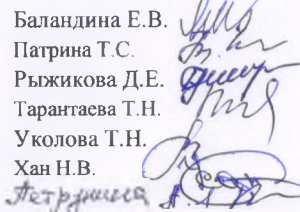 Баландина Е.В.
Патрина Т.С.
Рыжикова Д.Е.
Тарантаева Т.Н.
Уколова Т.Н.
Хан Н.В.